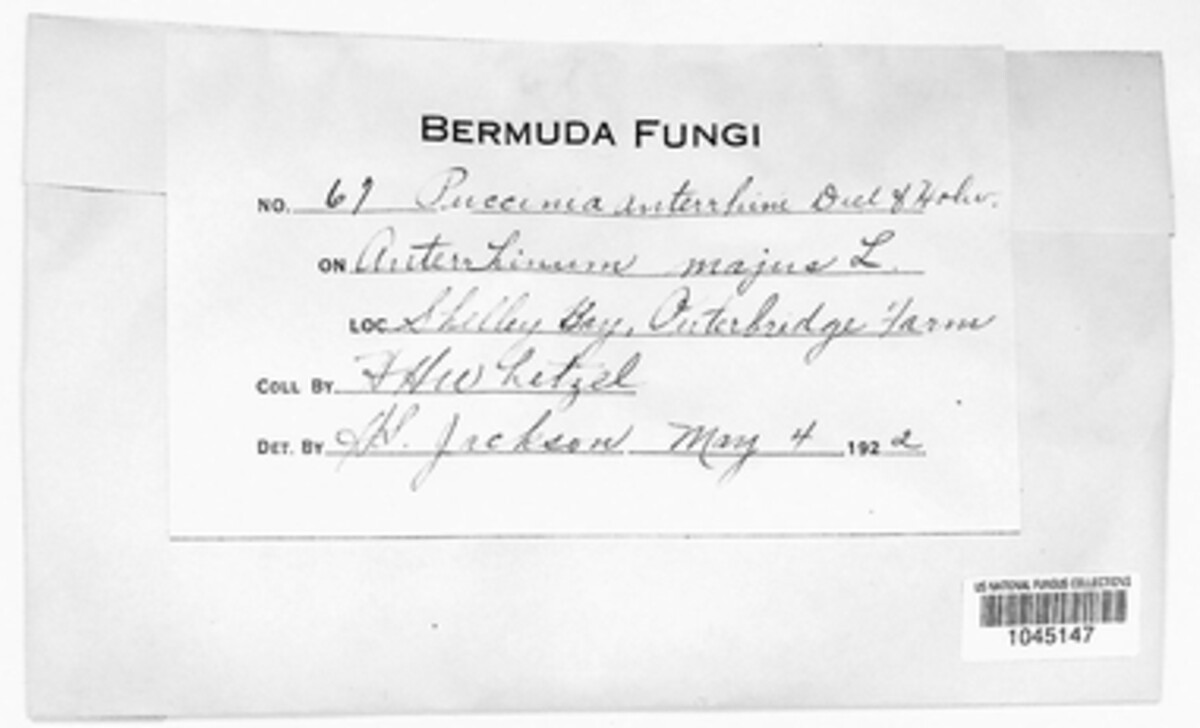 BERMUDA FUNGI
NO. 67 Puccinia anterrhini Diel & Holw.
ON Anterrhinum majus L.
LOC Shelley Bay, Outerbridge Farm
COLL BY. H H Whetzel
DET. BY H.S. Jackson May 4 1922
US NATIONAL FUNGUS COLLECTIONS
1045147